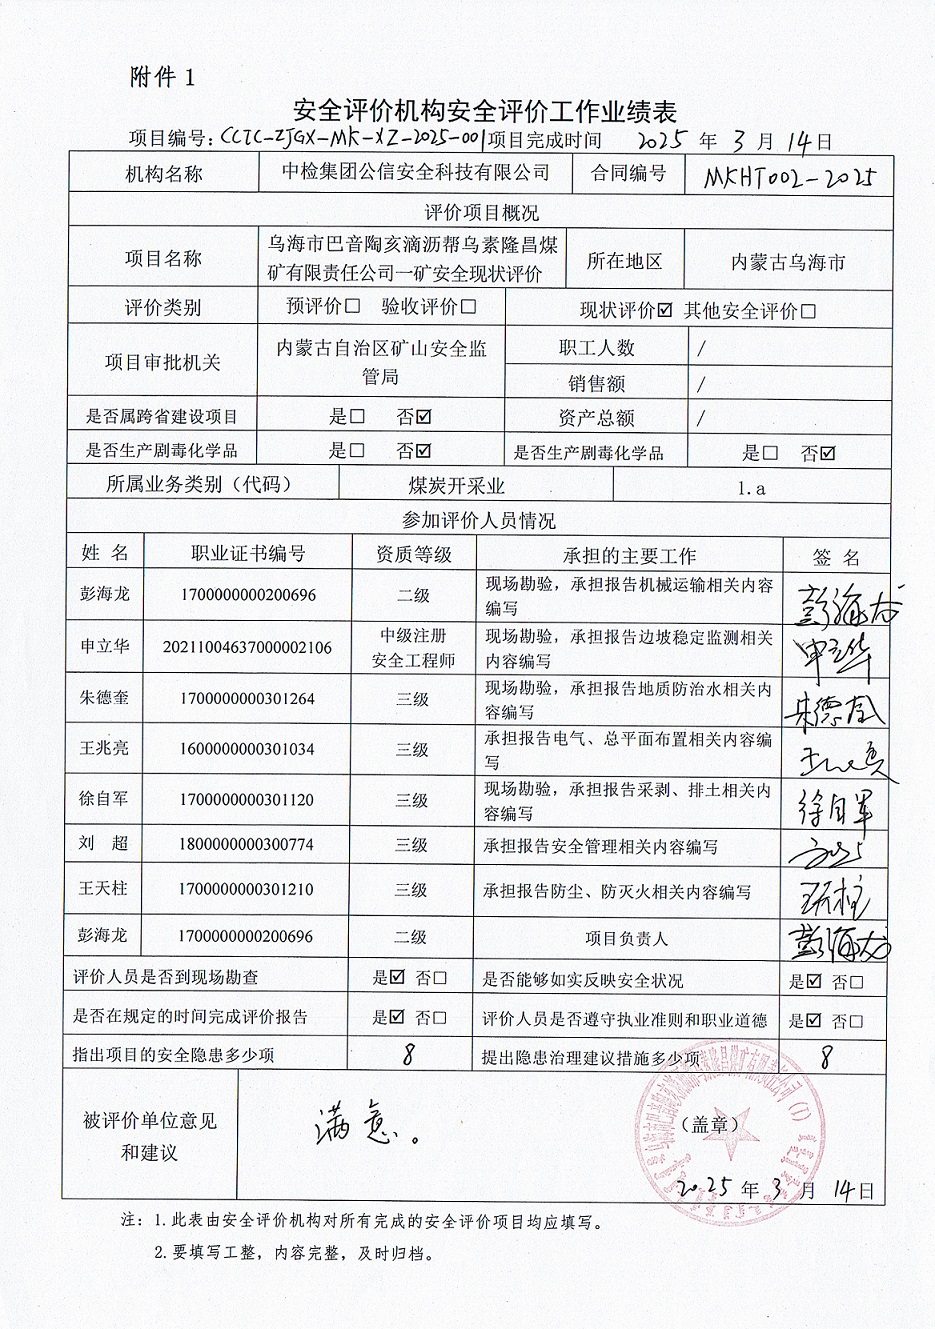 附件 1
安全评价机构安全评价工作业绩表
项目编号：CCTC-ZJGX-MK-XZ-2025-001 项目完成时间 2025 年 3 月 14 日
机构名称 中检集团公信安全科技有限公司 合同编号 MKHT002-2025
评价项目概况
项目名称 乌海市巴音陶亥滴沥帮乌素隆昌煤矿有限责任公司一矿安全现状评价 所在地区 内蒙古乌海市
评价类别 预评价☐ 验收评价☐ 现状评价☑ 其他安全评价☐
项目审批机关 内蒙古自治区矿山安全监管局 职工人数 /
销售额 /
是否属跨省建设项目 是☐ 否☑ 资产总额 /
是否生产剧毒化学品 是☐ 否☑ 是否生产剧毒化学品 是☐ 否☑
所属业务类别（代码） 煤炭开采业 1.a
参加评价人员情况
姓 名 职业证书编号 资质等级 承担的主要工作 签 名
彭海龙 1700000000200696 二级 现场勘验，承担报告机械运输相关内容编写 彭海龙
申立华 20211004637000002106 中级注册安全工程师 现场勘验，承担报告边坡稳定监测相关内容编写 申立华
朱德奎 1700000000301264 三级 现场勘验，承担报告地质防治水相关内容编写 朱德奎
王兆亮 1600000000301034 三级 承担报告电气、总平面布置相关内容编写
徐自军 1700000000301120 三级 现场勘验，承担报告采剥、排土相关内容编写 徐自军
刘 超 1800000000300774 三级 承担报告安全管理相关内容编写
王天柱 1700000000301210 三级 承担报告防尘、防灭火相关内容编写 王天柱
彭海龙 1700000000200696 二级 项目负责人 彭海龙
评价人员是否到现场勘查 是☑ 否☐ 是否能够如实反映安全状况 是☑ 否☐
是否在规定的时间完成评价报告 是☑ 否☐ 评价人员是否遵守执业准则和职业道德 是☑ 否☐
指出项目的安全隐患多少项 8 提出隐患治理建议措施多少项 8
被评价单位意见和建议 满意。 （盖章）
2025 年 3 月 14 日
注：1.此表由安全评价机构对所有完成的安全评价项目均应填写。
2.要填写工整，内容完整，及时归档。